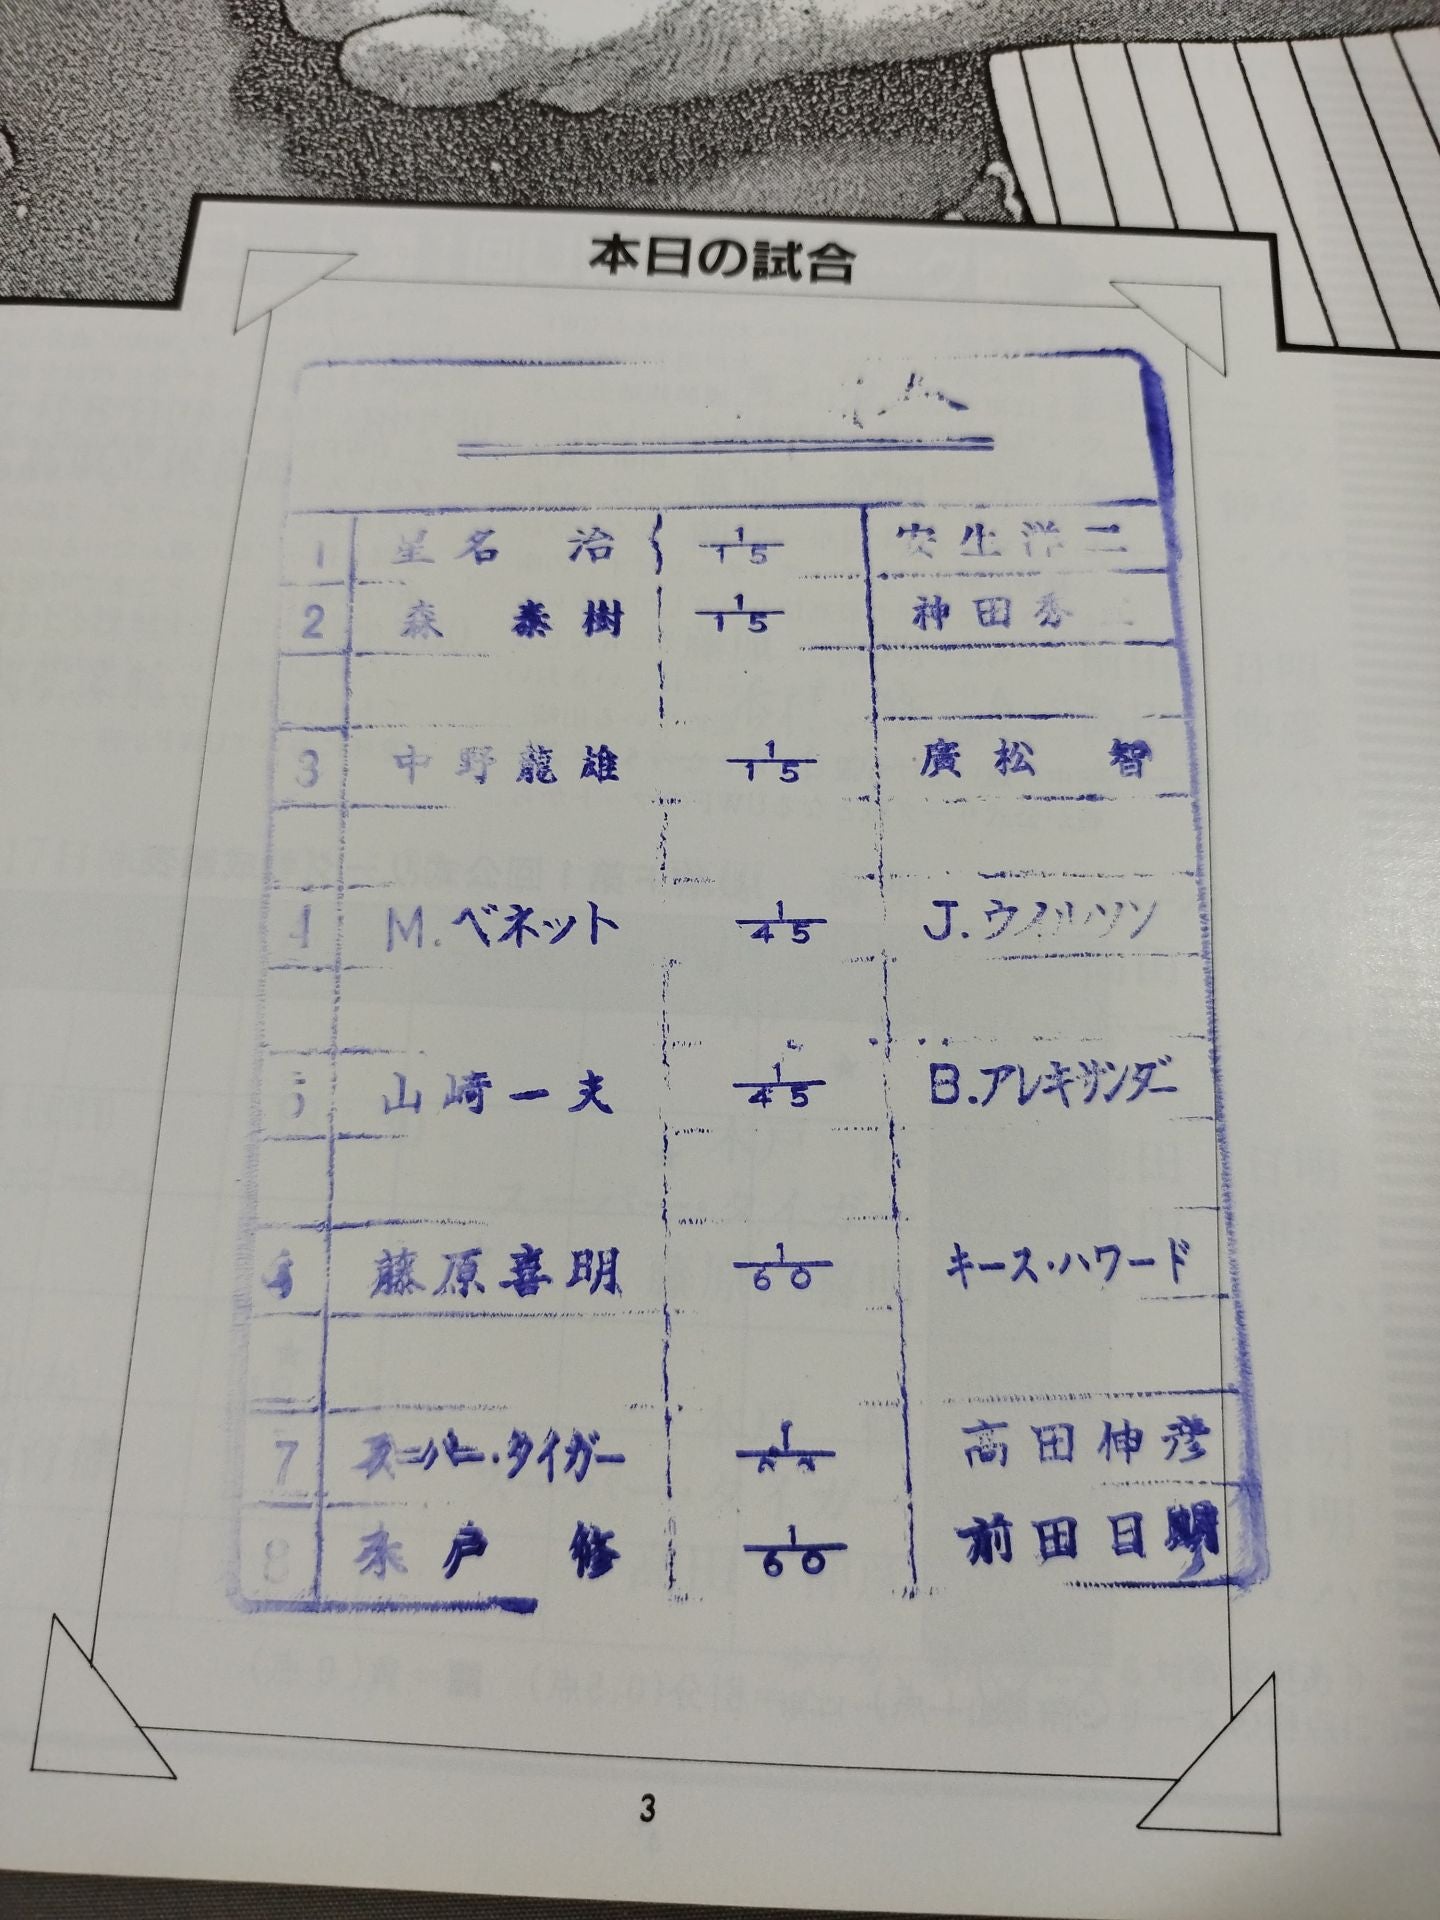 本日の試合
1 星名 治 1/15 安生洋二
2 森 泰樹 1/15 神田秀
3 中野龍雄 1/15 廣松 智
4 M.ベネット 1/45 J.ウィルソン
5 山崎一夫 1/45 B.アレキサンダー
6 藤原喜明 1/60 キース・ハワード
7 スーパー・タイガー 高田伸彦
8 木戸 修 1/60 前田日明
3